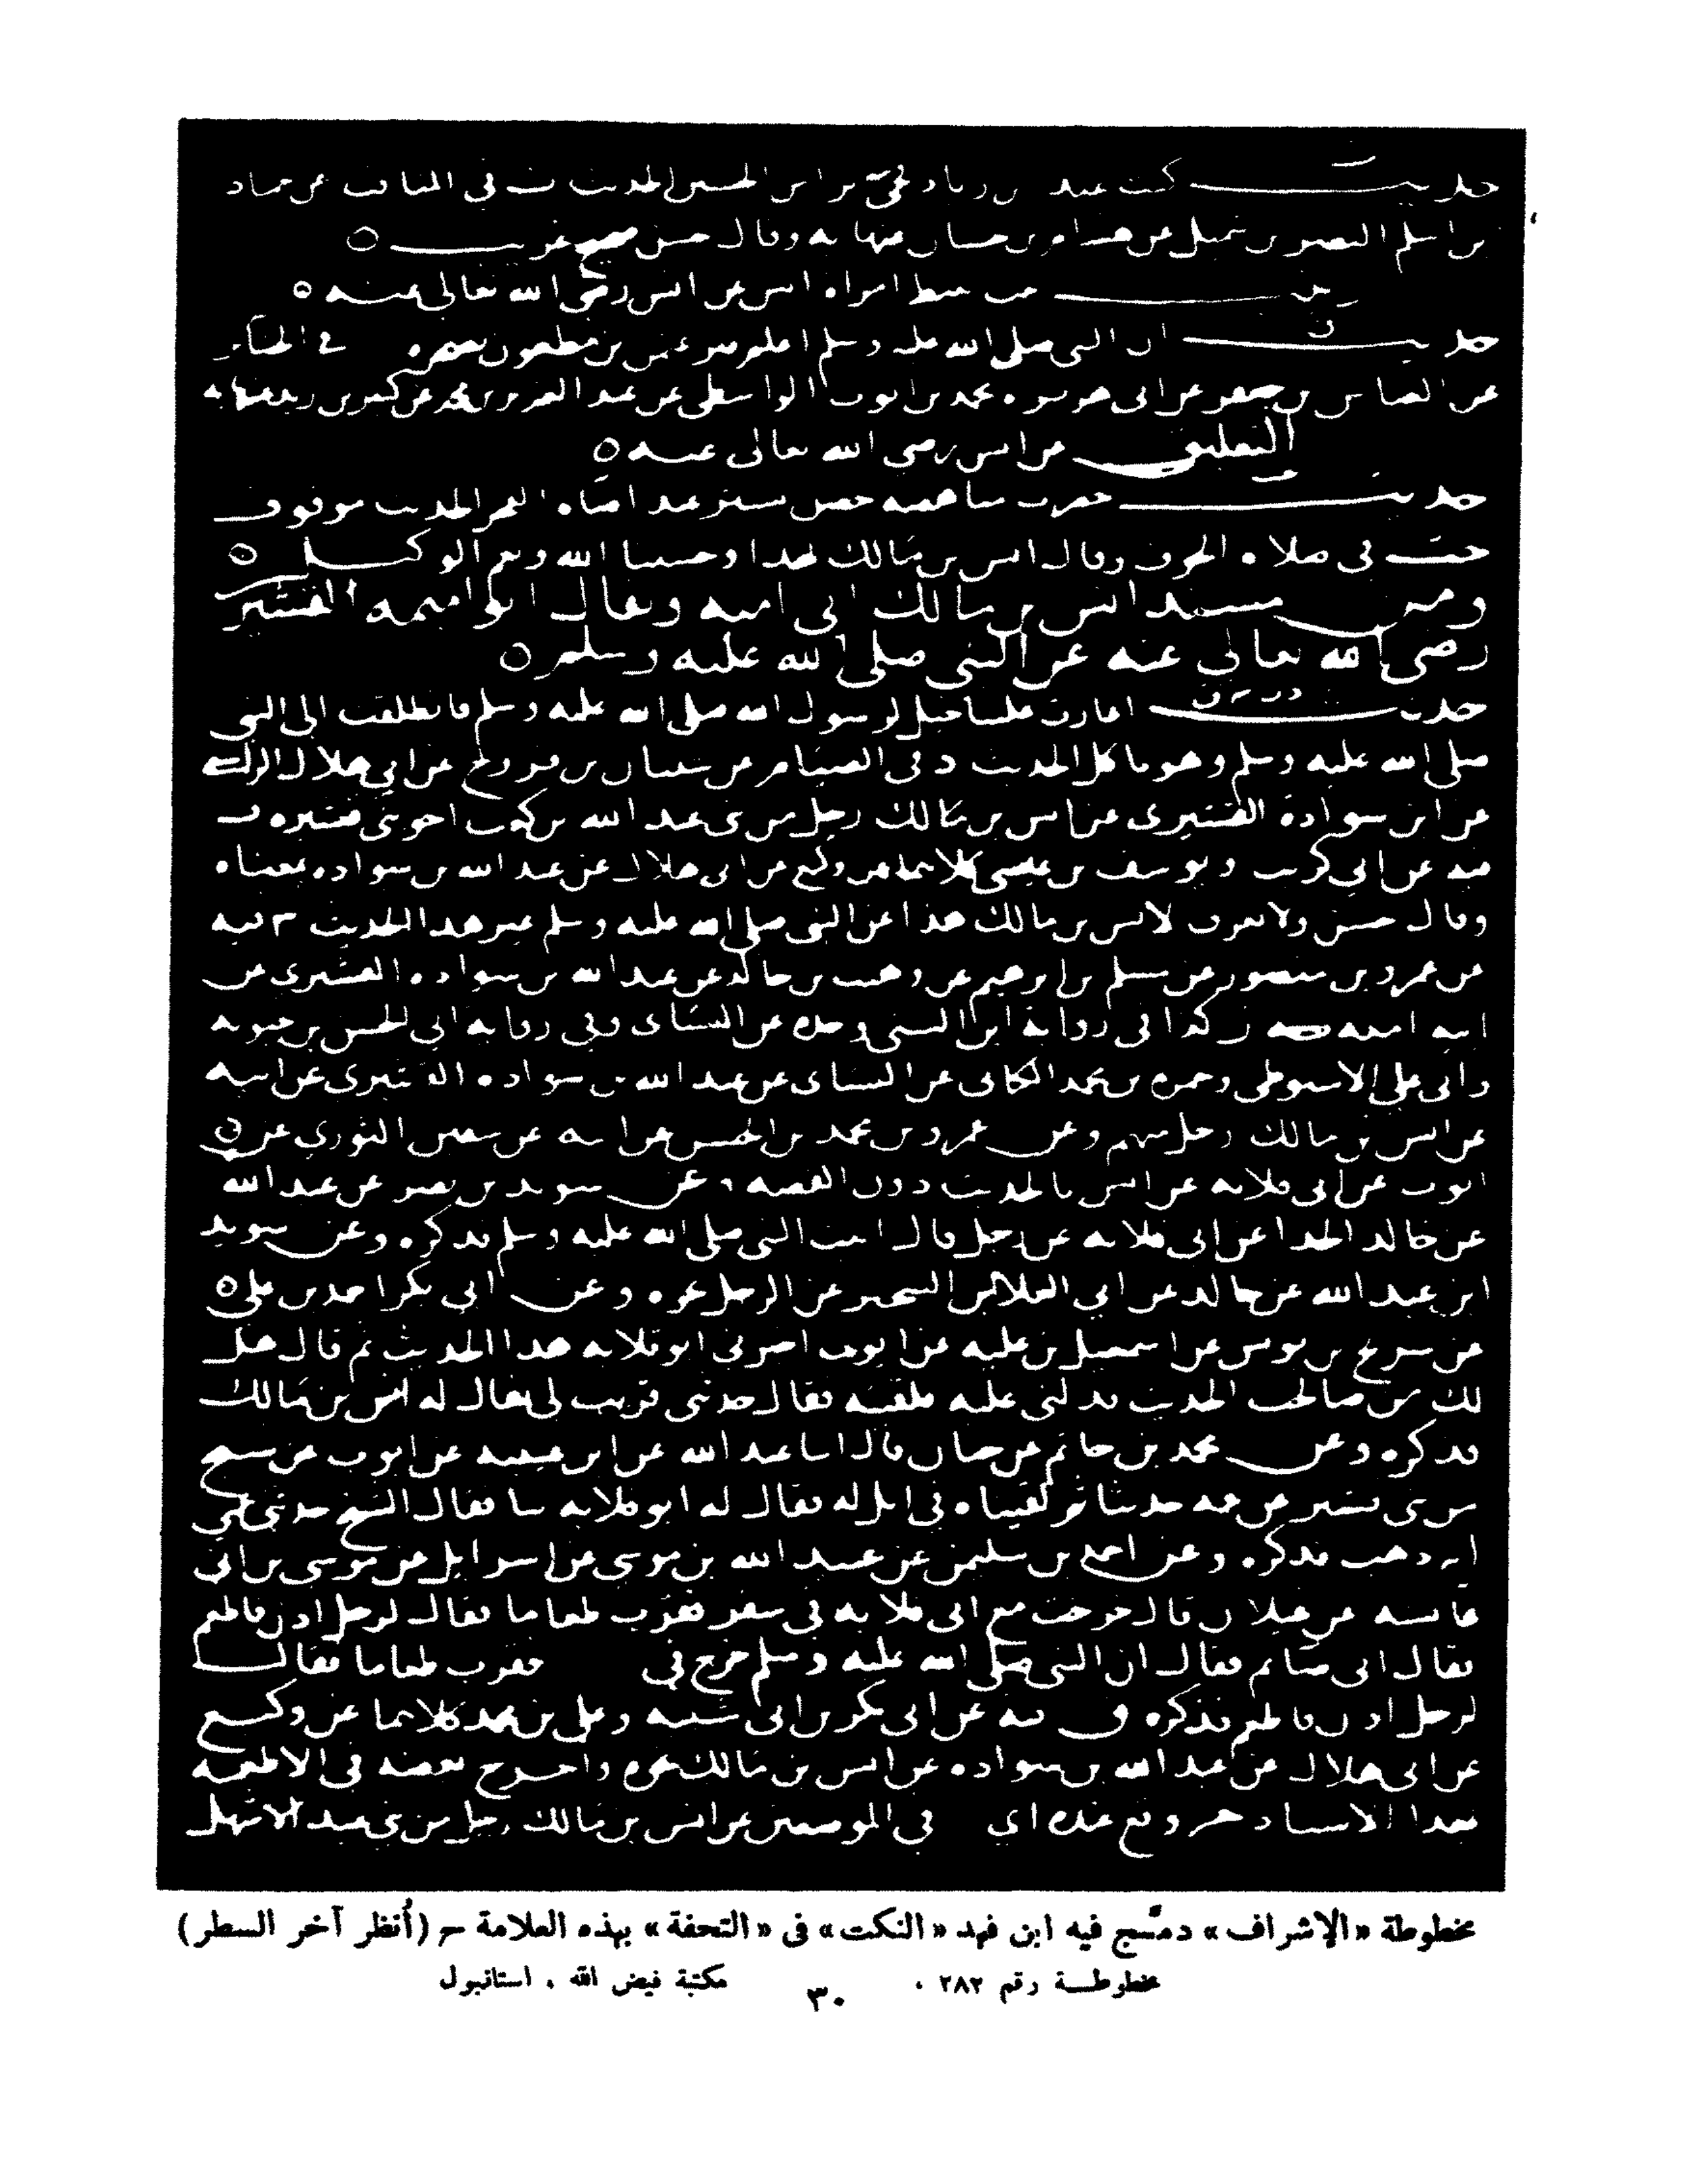 حديث كنت عند بن زياد فجئ براس الحسين الحديث ت فى المناقب عن خلاد
بن اسلم النضر بن شميل عن هشام بن حسان عنها به وقال حسن صحيح غريب
امراة انس عن انس رضى الله تعالى عنه
حديث ان النبى صلى الله عليه وسلم اعلم قبر عثمن بن مظعون بصخره فى الجنائز
عن العباس بن جعفر عن ابى هريره محمد بن ايوب الواسطى عن عبد العزيز بن محمد عن كثير بن زيد عنها به
التعليق عن انس رضى الله تعالى عنه
حديث حضرت مناهضه حصن تستر عند اضاه الفجر الحديث موقوف
خت فى صلاه الخوف وقال انس بن مالك بهذا وحسبنا الله ونعم الوكيل
ومن مسند انس بن مالك ابى اميه ويقال ابو اميمه القشيرى
رضى الله تعالى عنه عن النبى صلى الله عليه وسلم
حديث اغارت علينا خيل لرسول الله صلى الله عليه وسلم فانطلقت الى النبى
صلى الله عليه وسلم وهو ياكل الحديث د فى الصيام عن شيبان بن فروخ عن ابى هلال الراسبى
عن ابن سوادة القشيرى عن انس بن مالك رجل من بنى عبد الله بن كعب اخوة بنى قشيره ت
فيه عن ابى كريب ويوسف بن عيسى كلاهما عن وكيع عن ابى هلال عن عبد الله بن سواده بمعناه
وقال حسن ولا نعرف لانس بن مالك هذا عن النبى صلى الله عليه وسلم غير هذا الحديث س فيه
عن عمرو بن منصور عن مسلم بن ابرهيم عن وهيب بن خالد عن عبد الله بن سواده القشيرى عن
ابيه كذا فى رواية ابن السنى وحده عن النساى وفى رواية ابى الحسن بن حيويه
وابى على الاسيوطى وحمزه بن محمد الكنانى عن النساى عن عبد الله بن سواده القشيرى عن ابيه
عن انس بن مالك رجل منهم وعن عمرو بن محمد بن الحسن عن ابيه عن سفين الثورى عن
ايوب عن ابى قلابه عن انس بالحديث دون القصه وعن سويد بن نصر عن عبد الله
عن خالد الحذا عن ابى قلابه عن رجل قال اتيت النبى صلى الله عليه وسلم فذكره وعن سويد
ابن عبد الله عن خالد عن ابى العلا بن الشخير عن الرجل نحوه وعن ابى بكر احمد بن على
عن سريج بن يونس عن اسمعيل بن عليه عن ايوب اخبرنى ابو قلابه هذا الحديث ثم قال هل
لك فى صاحب الحديث فدلنى عليه فلقيته فقال حدثنى قريب لى يقال له انس بن مالك
فذكره وعن محمد بن حاتم عن حبان قال انا عبد الله عن ابن عيينه عن ايوب عن شيخ
من بنى قشير عن عمه حدثنا ثم لقيناه فى ابل له فقال له ابو قلابه حدثنا فقال الشيخ حدثنى عمى
انه ذهب فذكره وعن احمد بن سليمن عن عبيد الله بن موسى عن اسرايل عن موسى بن ابى
عائشه عن غيلان قال خرجت مع ابى قلابه فى سفر فقرب طعاما فقال لرجل ادن فاطعم
فقال انى صائم فقال ان النبى صلى الله عليه وسلم خرج فى فقرب طعاما فقال
لرجل ادن فاطعم فذكره ق فيه عن ابى بكر بن ابى شيبه وعلى بن محمد كلاهما عن وكيع
عن ابى هلال عن عبد الله بن سواده عن انس بن مالك نحوه واخرج بعضه فى الاطعمه
بهذا الاسناد وقع عنده اى فى الموضعين عن انس بن مالك رجل من بنى عبد الاشهل
مخطوطة «الإشراف» دمّج فيه ابن فهد «النكت» فى «التحفة» بهذه العلامة ~ (أُنظر آخر السطر)
مخطوطة رقم ٢٨٢ ، مكتبة فيض الله ، استانبول
٣٠